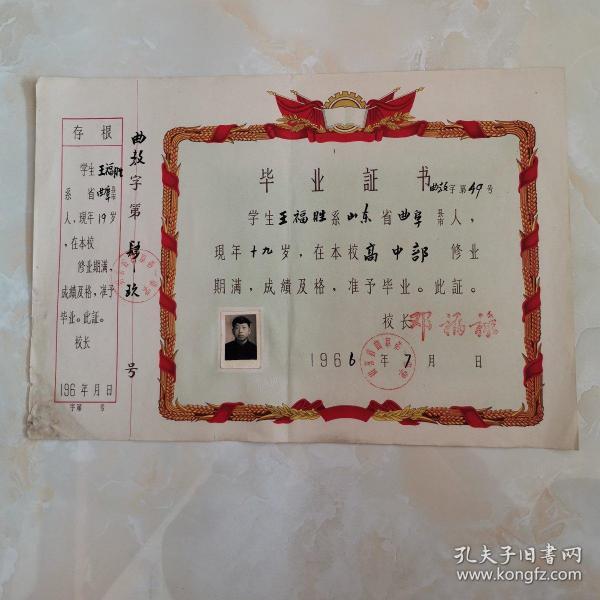 存根
学生王福胜
系 省曲阜县市
人，現年19岁
，在本校
修业期满，
成績及格，准予
毕业。此証。
校长
196 年 月 日
字第 号
曲教字第肆玖号
毕业証书
曲教字第49号
学生王福胜系山东省曲阜县市人，
現年十九岁，在本校高中部 修业
期满，成績及格，准予毕业。此証。
校长
1966年7月 日
孔夫子旧书网
www.kongfz.com